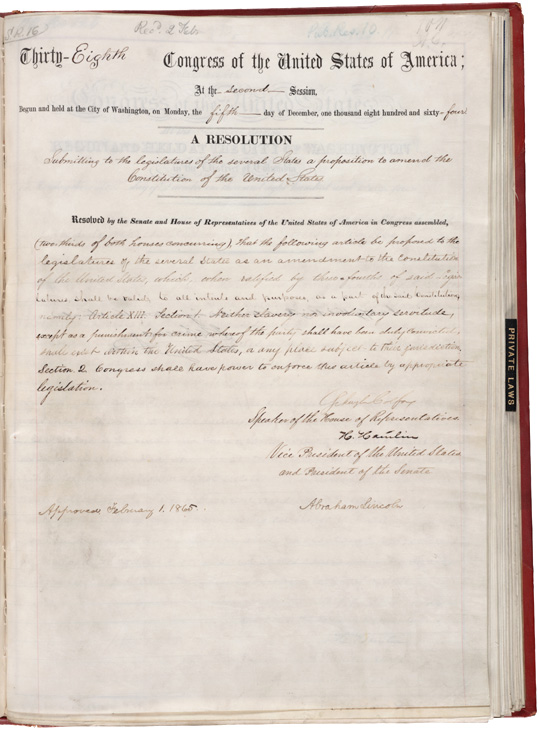 S.R. 16
Recd. 2 Feb.
Thirty-Eighth Congress of the United States of America;
At the Second Session,
Begun and held at the City of Washington, on Monday, the fifth day of December, one thousand eight hundred and sixty-four
A RESOLUTION
Submitting to the legislatures of the several States a proposition to amend the
Constitution of the United States
Resolved by the Senate and House of Representatives of the United States of America in Congress assembled,
(two-thirds of both houses concurring), That the following article be proposed to the
legislatures of the several States as an amendment to the Constitution
of the United States, which, when ratified by three-fourths of said Legis-
latures, shall be valid, to all intents and purposes, as a part of the said Constitution,
namely: Article XIII. Section 1. Neither slavery nor involuntary servitude,
except as a punishment for crime whereof the party shall have been duly convicted,
shall exist within the United States, or any place subject to their jurisdiction.
Section 2. Congress shall have power to enforce this article by appropriate
legislation.
Schuyler Colfax
Speaker of the House of Representatives
H. Hamlin
Vice President of the United States
and President of the Senate
Approved February 1. 1865.
Abraham Lincoln
PRIVATE LAWS